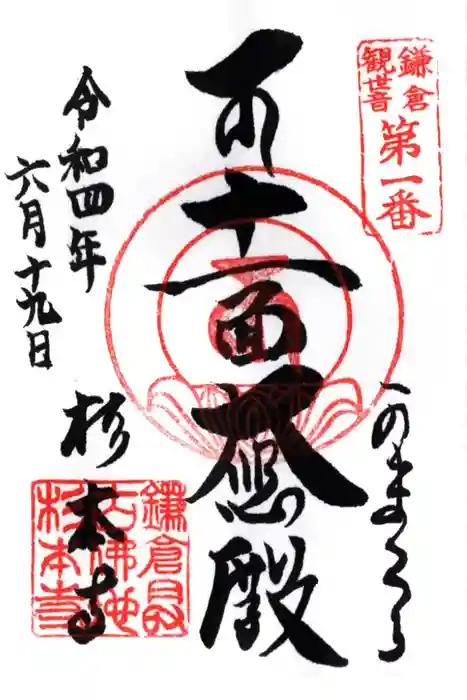 鎌倉
観世音
第一番
かまくら
十一面大悲殿
杉本寺
令和四年
六月十九日
鎌倉最
古佛地
杉本寺